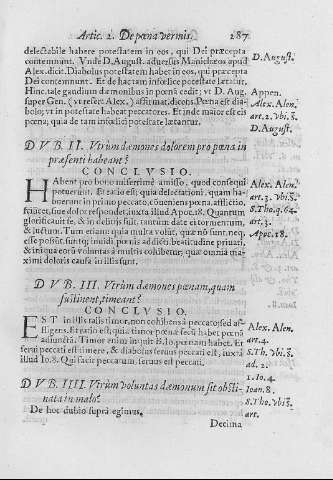 Artic. 2. De pœna vermis. 287
delectabile habere potestatem in eos, qui Dei præcepta
contemnunt. Vnde D. August. aduersus Manichæos apud
Alex. dicit. Diabolus potestatem habet in eos, qui præcepta
Dei contemnunt. Et de hac tam infœlice potestate lætatur.
Hinc, tale gaudium dæmonibus in pœnã cedit; vt D. Aug.
super Gen. (vt refert Alex.) affirmat dicens. Pœna est dia-
bolo; vt in potestate habeat peccatores. Et inde maior est eis
pœna; quia de tam infœlice potestate lætantur.
D. August.
Appen.
Alex. Alen.
art. 2. vbi. s̃.
D. August.
DVB. II. Vtrùm dæmones dolorem pro pœna in
præsenti habeant?
CONCLVSIO.
HAbent pro bono aufterno amisso, quod consequi
potuerunt. Et ratio est; quia delectationi, quam ha-
buerunt in primo peccato, cõueniens pœna, afflictio,
siue dolor respondet, iuxta illud Apoc. 18. Quantum
glorificauit se, & in delitijs fuit, tantùm date ei tormentum,
& luctum. Tum etiam; quia multa volũt, quæ nõ sunt, neq;
esse possũt; suntq; inuidi pœnis addicti, beatitudine priuati,
& iniqua eorũ volũtas à multis cohibetur, quæ omnia ma-
ximi doloris causa in illis sunt.
Alex. Alen.
art. 3. vbi s̃.
S. Tho. q. 64.
art. 3.
Apoc. 18.
DVB. III. Vtrùm dæmones pœnam, quam
sustinent, timeant?
CONCLVSIO.
EST in illis talis timor, non cohibens à peccato; sed af-
fligens. Et ratio est; quia timor pœnæ secũ habet pœnã
adiunctã. Timor enim inquit B. Io. pœnam habet. Et
serui peccati est timere, & diabolus seruus peccati est, iuxtà
illud Io. 8. Qui facit peccatum, seruus est peccati.
Alex. Alen.
art. 4.
S. Th. vbi s̃.
ad. 2.
1. Io. 4.
Ioan. 8.
DVB. IIII. Vtrùm voluntas dæmonum sit obsti-
nata in malo?
De hoc dubio suprà egimus.
S. Tho. vbi s̃.
art.
Decima